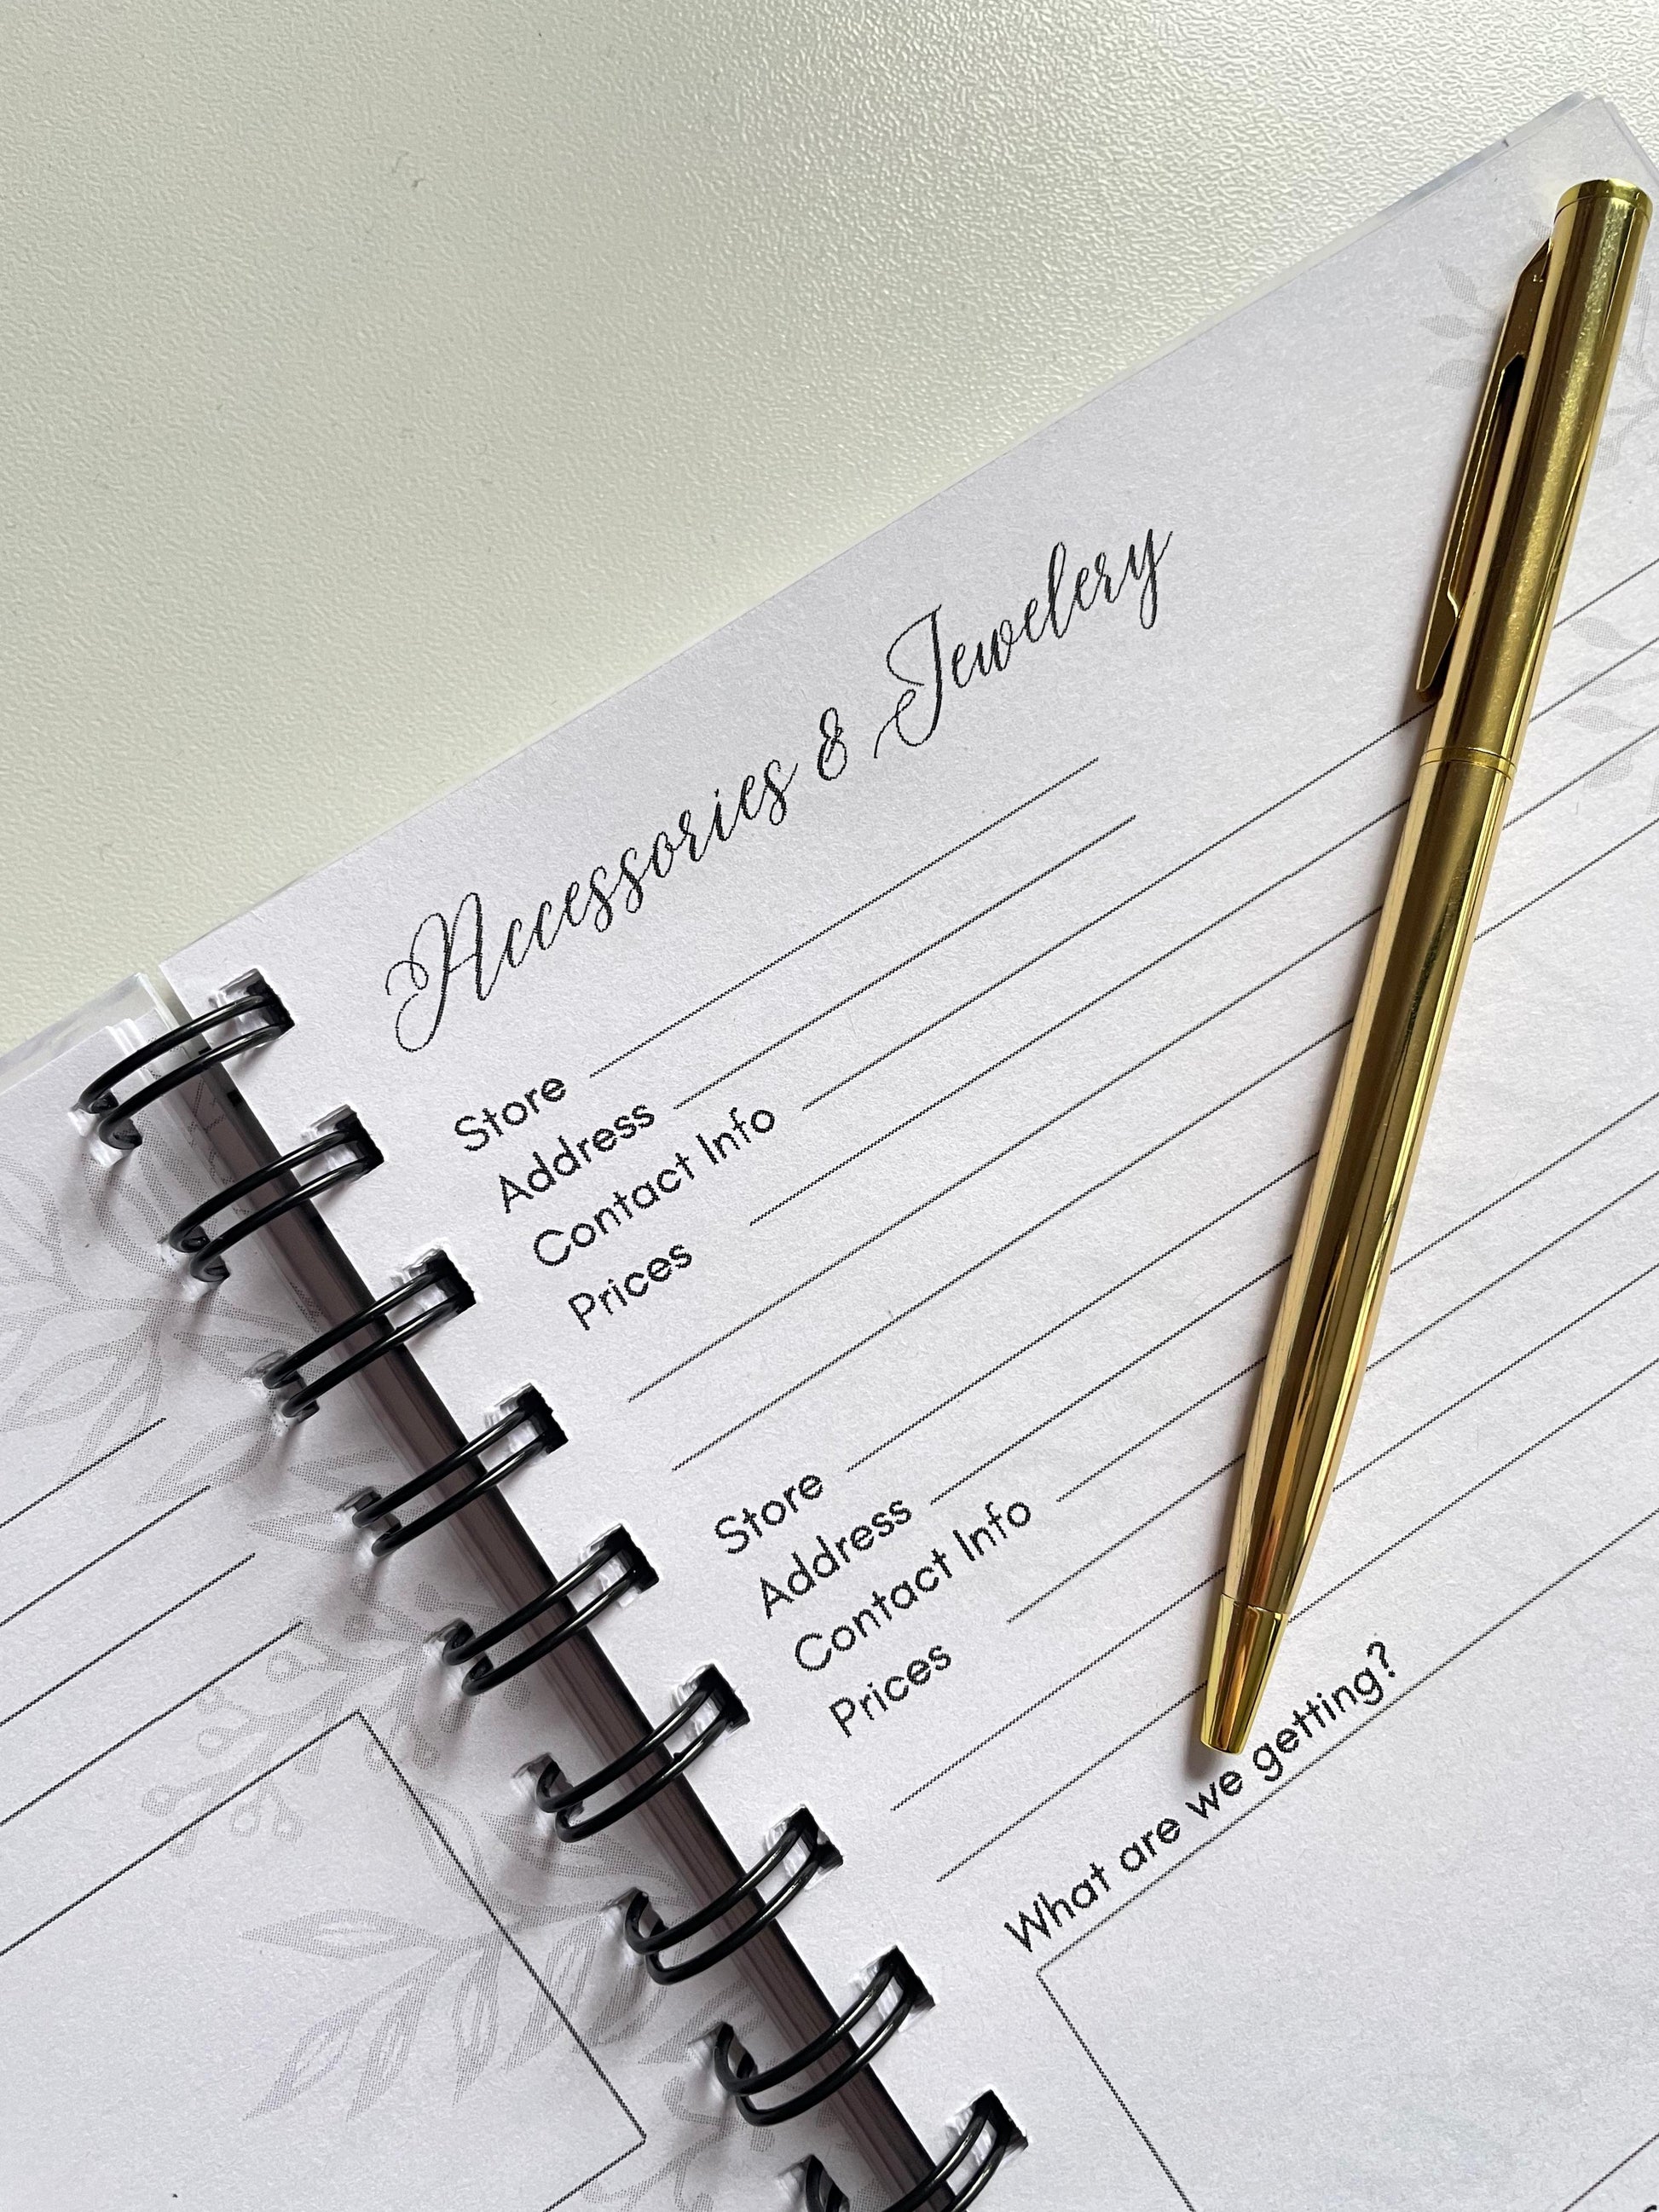 Accessories & Jewelery
Store
Address
Contact Info
Prices
Store
Address
Contact Info
Prices
What are we getting?